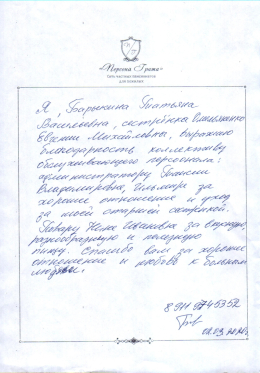 «Персона Грата»
Я, Барыкина Татьяна
Васильевна, сестрёнка
Евгении Михайловны, выражаю
благодарность коллективу
обслуживающего персонала:
администратору
Владимировна, за
хорошее отношение и уход
за моей старшей сестрёнкой.
Повару Нине Ивановне за вкусную,
разнообразную и полезную
пищу. Спасибо вам за хорошее
отношение и любовь к больным
людям.
8 911 9745352